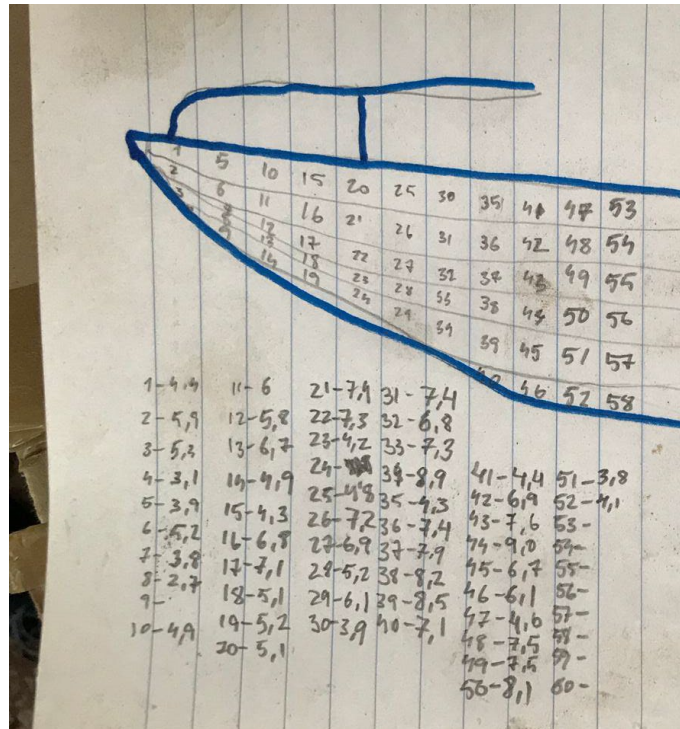 1 5 10 15 20 25 30 35 41 47 53
2 6 11 16 21 26 31 36 42 48 54
3 12 17 22 27 32 37 43 49 55
13 18 23 28 33 38 44 50 56
14 19 24 29 34 39 45 51 57
46 52 58
1-4,4
2-5,9
3-5,3
4-3,1
5-3,9
6-5,2
7-3,8
8-2,7
9-
10-4,9
11-6
12-5,8
13-6,7
14-4,9
15-4,3
16-6,8
17-7,1
18-5,1
19-5,2
20-5,1
21-7,4
22-7,3
23-4,2
24-
25-4,8
26-7,2
27-6,9
28-5,2
29-6,1
30-3,9
31-7,4
32-6,8
33-7,3
34-8,9
35-4,3
36-7,4
37-7,9
38-8,2
39-8,5
40-7,1
41-4,4
42-6,9
43-7,6
44-9,0
45-6,7
46-6,1
47-4,6
48-7,5
49-7,5
50-8,1
51-3,8
52-4,1
53-
54-
55-
56-
57-
58-
59-
60-